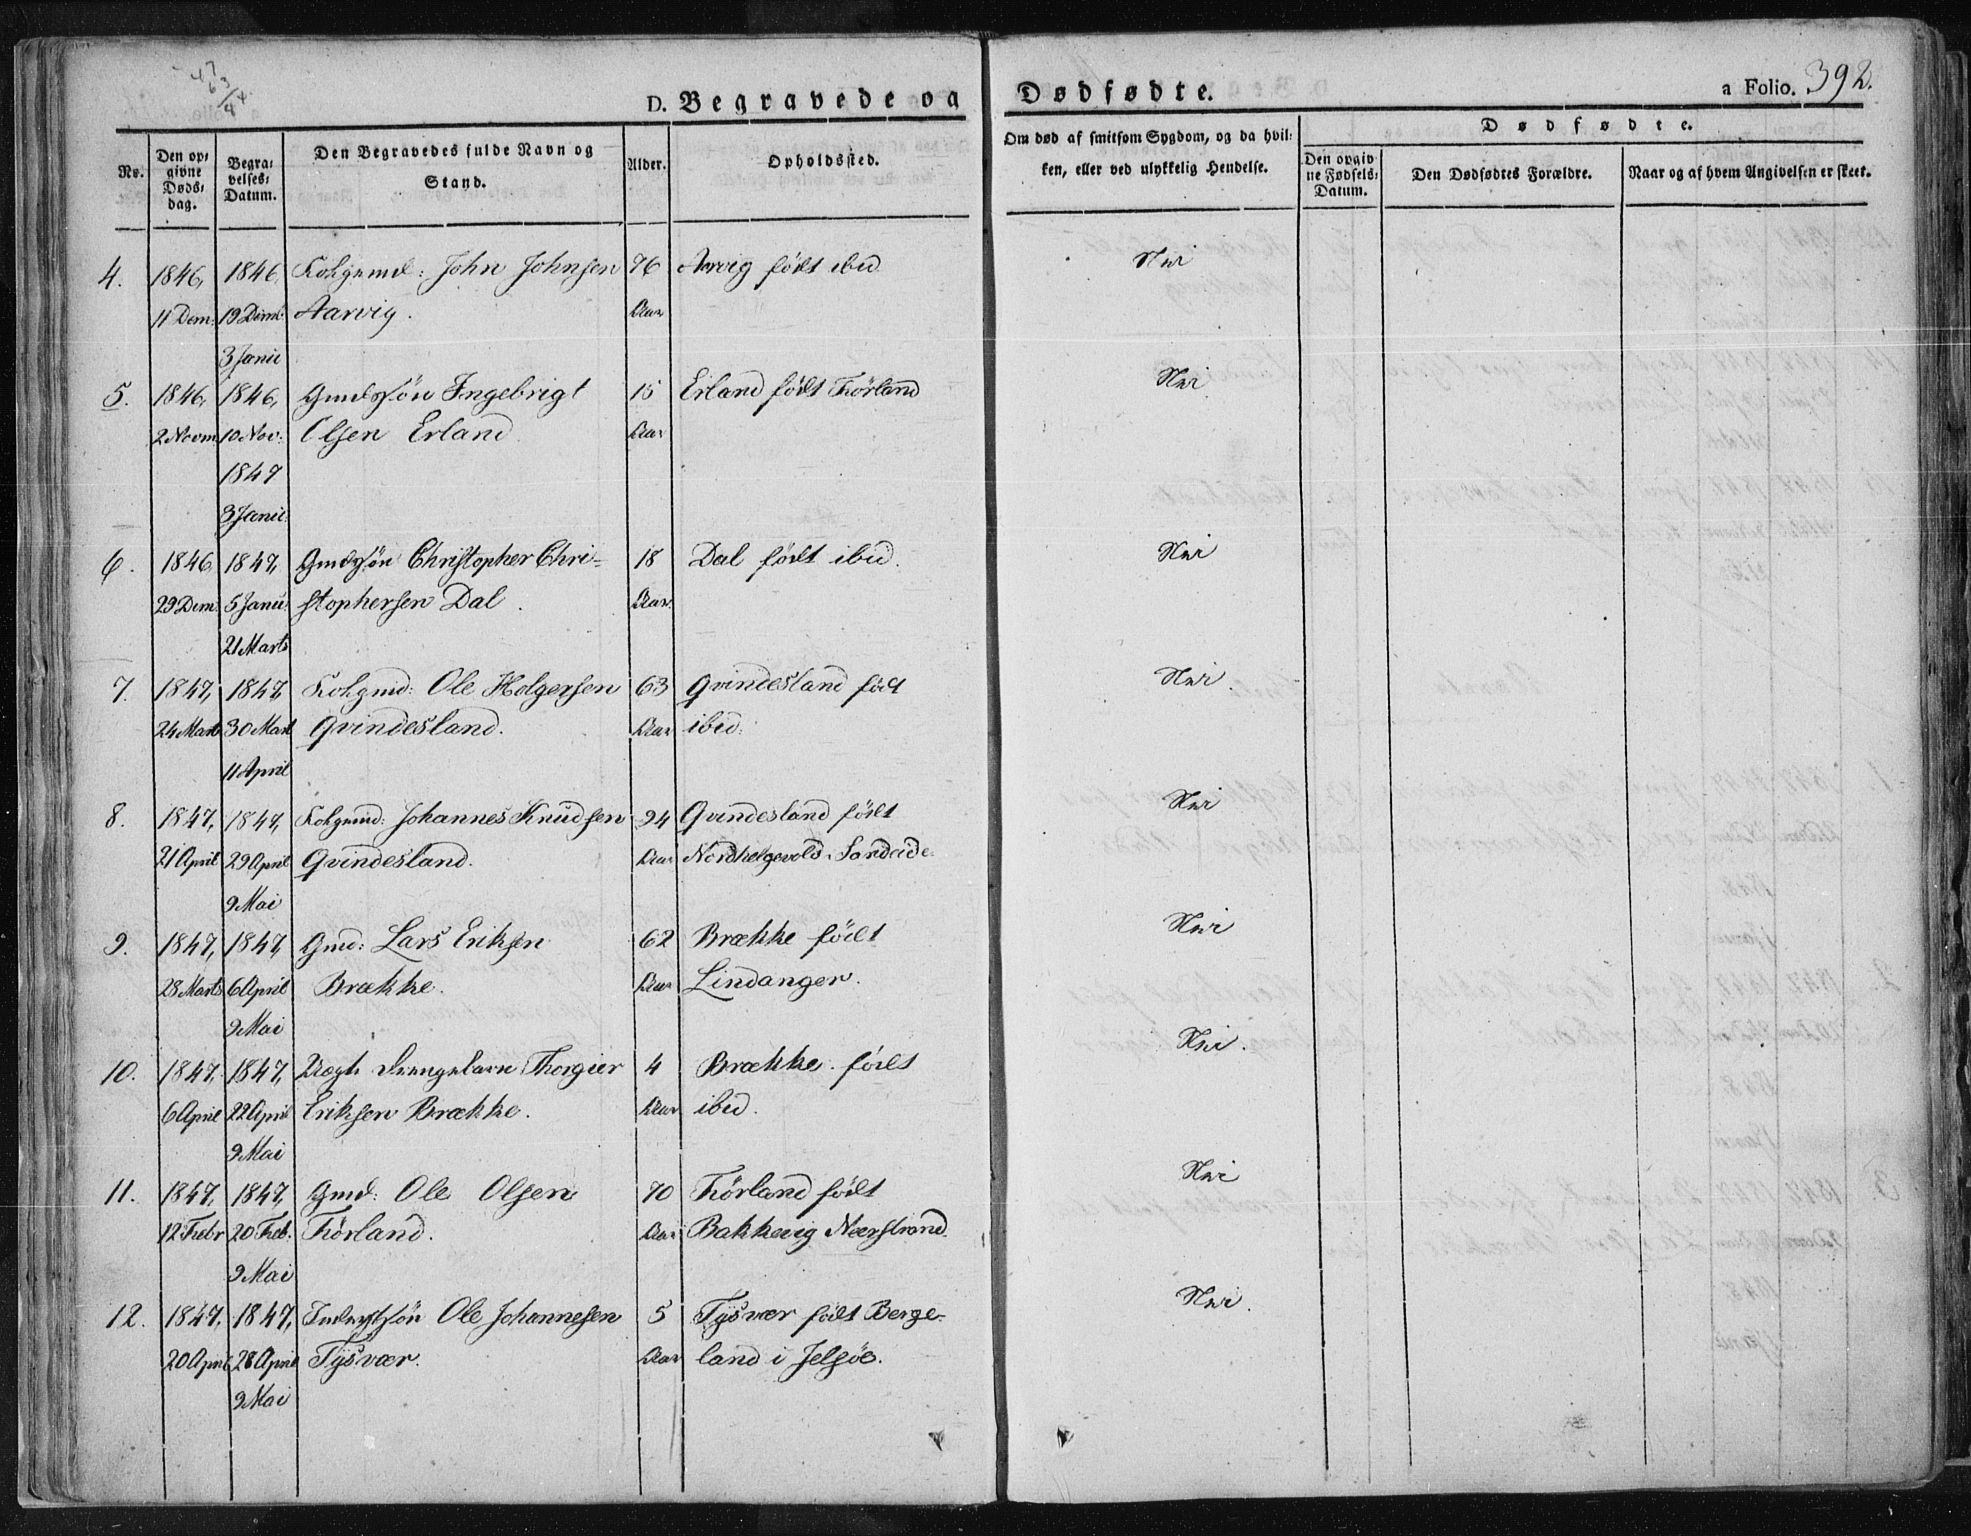 47
63/44.
D. Begravede og Dødfødte. a Folio. 392.
No.
Den opgivne Dødsdag.
Begravelses-Datum.
Den Begravedes fulde Navn og Stand.
Alder.
Opholdssted.
Om død af smitsom Sygdom, og da hvilken, eller ved ulykkelig Hendelse.
Dødfødte.
Den opgivne Fødsels-Datum.
Den Dødfødtes Forældre.
Naar og af hvem Angivelsen er skeet.
4. 1846, 1846 : John Johnsen 76 Aarvig født ibid Nei
11 Decm: 19 Decm: Aarvig. Aar
3 Janu
5. 1846, 1846, Gmdssøn Ingebrigt 15 Erland født Førland Nei
2 Novm 10 Nov: Olsen Erland Aar
1847
3 Janu:
6. 1846 1847, Gmdssøn Christopher Chri- 18 Dal født ibid. Nei
29 Decm: 5 Janu: stophersen Dal. Aar.
21 Marts
7. 1847, 1847 : Ole Holgersen 63 Qvindesland født Nei.
24 Marts 30 Mart Qvindesland. Aar ibid.
11 April
8. 1847, 1847, : Johannes Knudsen 94 Qvindesland født Nei
21 April 29 April Qvindesland. Aar
9 Mai
9. 1847, 1847, Gmd: Lars Eriksen 62 Brække født Nei
28 Marts 6 April Brække. Aar Lindanger.
9 Mai
10. 1847, 1847, Drengebarn Thorgier 4 Brække. født Nei.
6 April 22 April Eriksen Brække. Aar ibid.
9 Mai
11. 1847, 1847, Gmd: Ole Olsen 70 Førland født Nei
12 Febr 20 Feb. Førland. Aar Bakkevig Nærstrand
9 Mai
12. 1847, 1847, Inderstsøn Ole Johannesen 5 Tysvær født Berge- Nei.
20 April 28 April Tysvær. Aar land i Jelsøe.
9 Mai